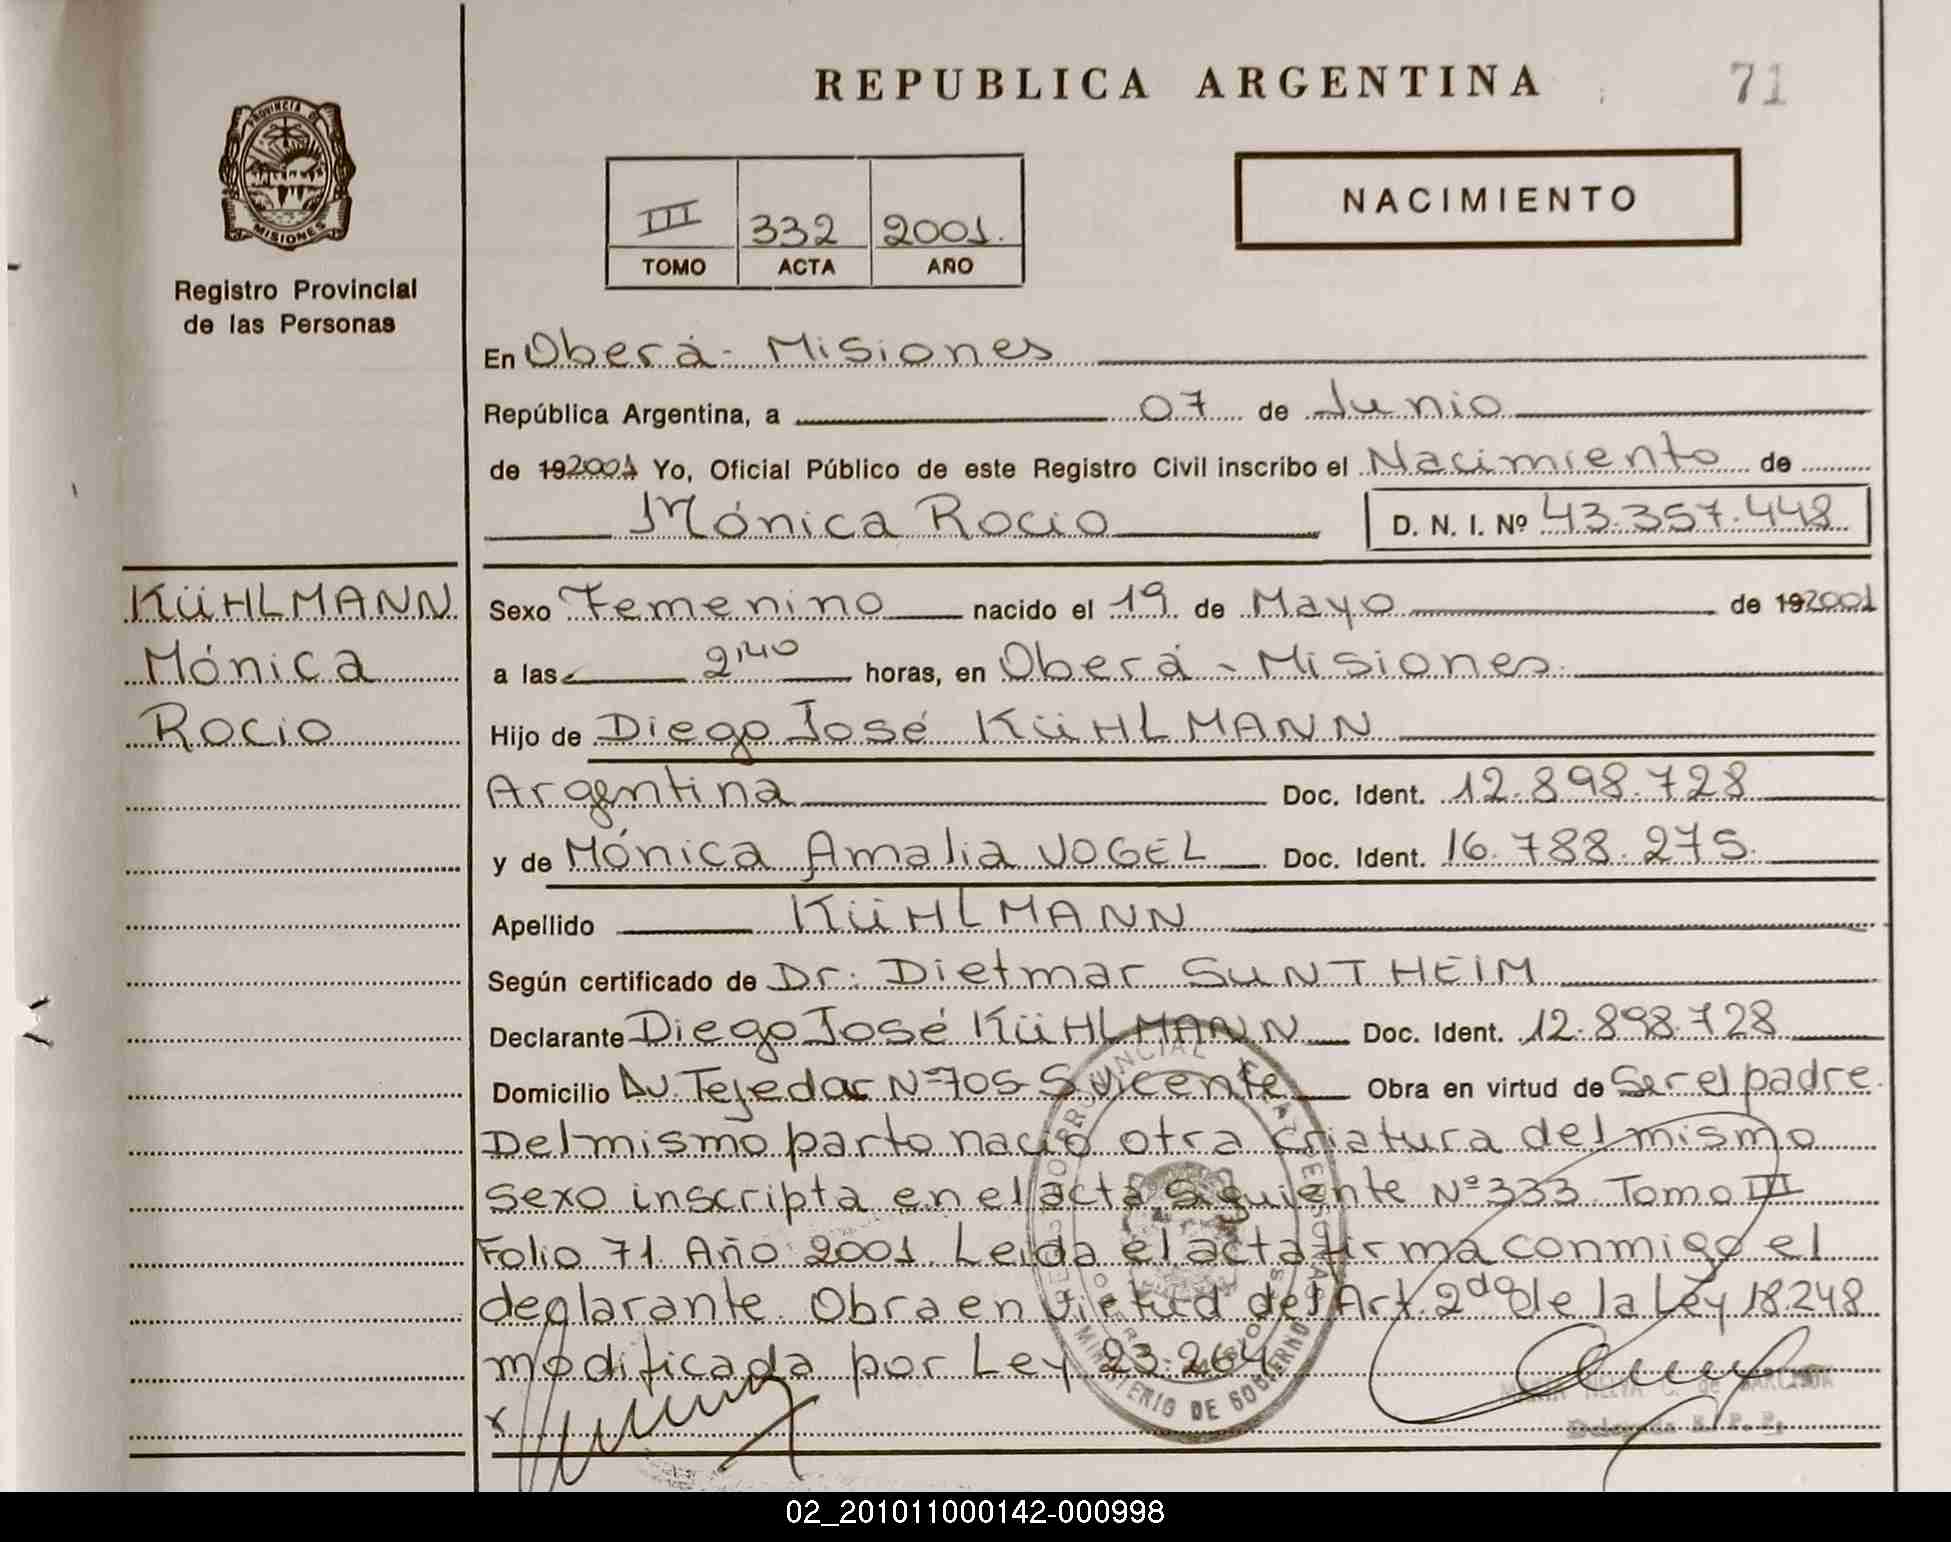 REPUBLICA ARGENTINA
71
PROVINCIA DE
MISIONES
Registro Provincial
de las Personas
III 332 2001.
TOMO ACTA AÑO
NACIMIENTO
En Oberá - Misiones
República Argentina, a 07 de Junio
de 192001 Yo, Oficial Público de este Registro Civil inscribo el Nacimiento de
Mónica Rocio D. N. I. Nº 43.357.448
KüHLMANN
Mónica
Rocio
Sexo Femenino nacido el 19 de Mayo de 192001
a las 2,40 horas, en Oberá - Misiones
Hijo de Diego José KüHLMANN
Argentina Doc. Ident. 12.898.728
y de Mónica Amalia VOGEL Doc. Ident. 16.788.275
Apellido KüHLMANN
Según certificado de Dr. Dietmar SUNTHEIM
Declarante Diego José KüHLMANN Doc. Ident. 12.898.728
Domicilio Av. Tejedor Nº 705 S. Vicente Obra en virtud de Ser el padre
Del mismo parto nacio otra criatura del mismo
sexo inscripta en el acta siguiente Nº 333 Tomo III
Folio 71. Año 2001. Leida el acta firma conmigo el
declarante. Obra en virtud del Art. 2do de la Ley 18.248
modificada por Ley 23.264
MINISTERIO DE GOBIERNO
Delegada R. P. P.
02_201011000142-000998